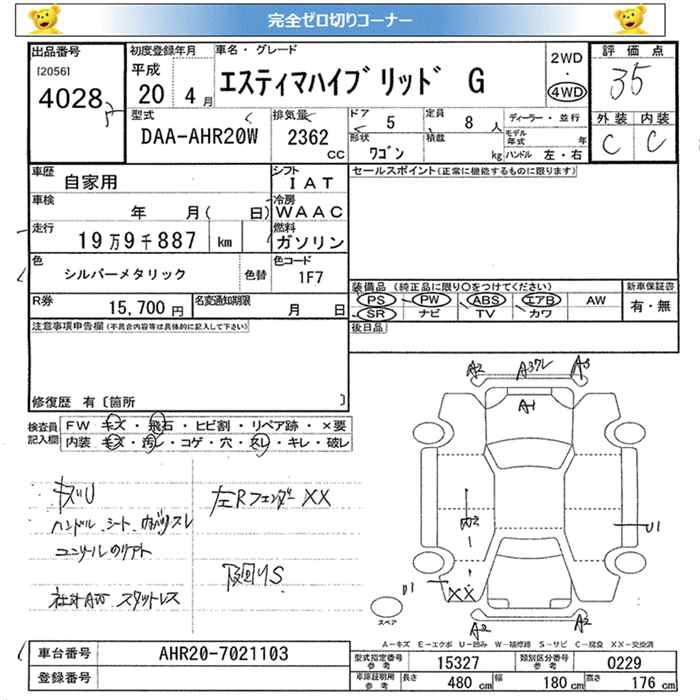 完全ゼロ切りコーナー
出品番号
[2056]
4028
初度登録年月
平成
20 4月
車名・グレード
エスティマハイブリッド G
2WD
・
4WD
評価点
35
型式
DAA-AHR20W
排気量
2362
CC
ドア
5
定員
8人
形状
ワゴン
積載
kg
ディーラー・並行
モデル年式 年
ハンドル 左・右
外装 内装
C C
車歴
自家用
シフト
IAT
車検
年 月( 日)
冷房
WAAC
走行
19万9千887 km
燃料
ガソリン
色
シルバーメタリック
色替
色コード
1F7
R券
15,700円
名変通知期限
月 日
セールスポイント(正常に機能するものに限ります)
装備品 (純正品に限り〇をつけてください)
PS PW ABS エアB AW
SR ナビ TV カワ
新車保証書
有・無
後日品
注意事項申告欄(不具合内容等は具体的に記入して下さい)
修復歴 有〔箇所 〕
検査員記入欄
FW キズ・飛石・ヒビ割・リペア跡・×要
内装 キズ・汚レ・コゲ・穴・スレ・キレ・破レ
キズU
ハンドル.シート.
左Rフェンダー XX
社外AW スタットレス
A2 A3ワレ A3
A1
A2
U1
U1
XX
A2 A2
スペア
A-キズ E-エクボ U-凹み W-補修跡 S-サビ C-腐食 XX-交換済
車台番号
AHR20-7021103
登録番号
型式指定番号 参考
15327
類別区分番号 参考
0229
車庫証明用 参考
長さ 480 cm
幅 180 cm
高さ 176 cm